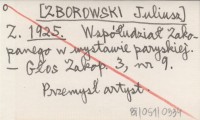 [ZBOROWSKI Juliusz]
Z. 1925. Współudział Zako-
panego w wystawie paryskiej.
— Głos Zakop. 3, nr 9.
Przemysł artyst.
BJ/OSY/0339